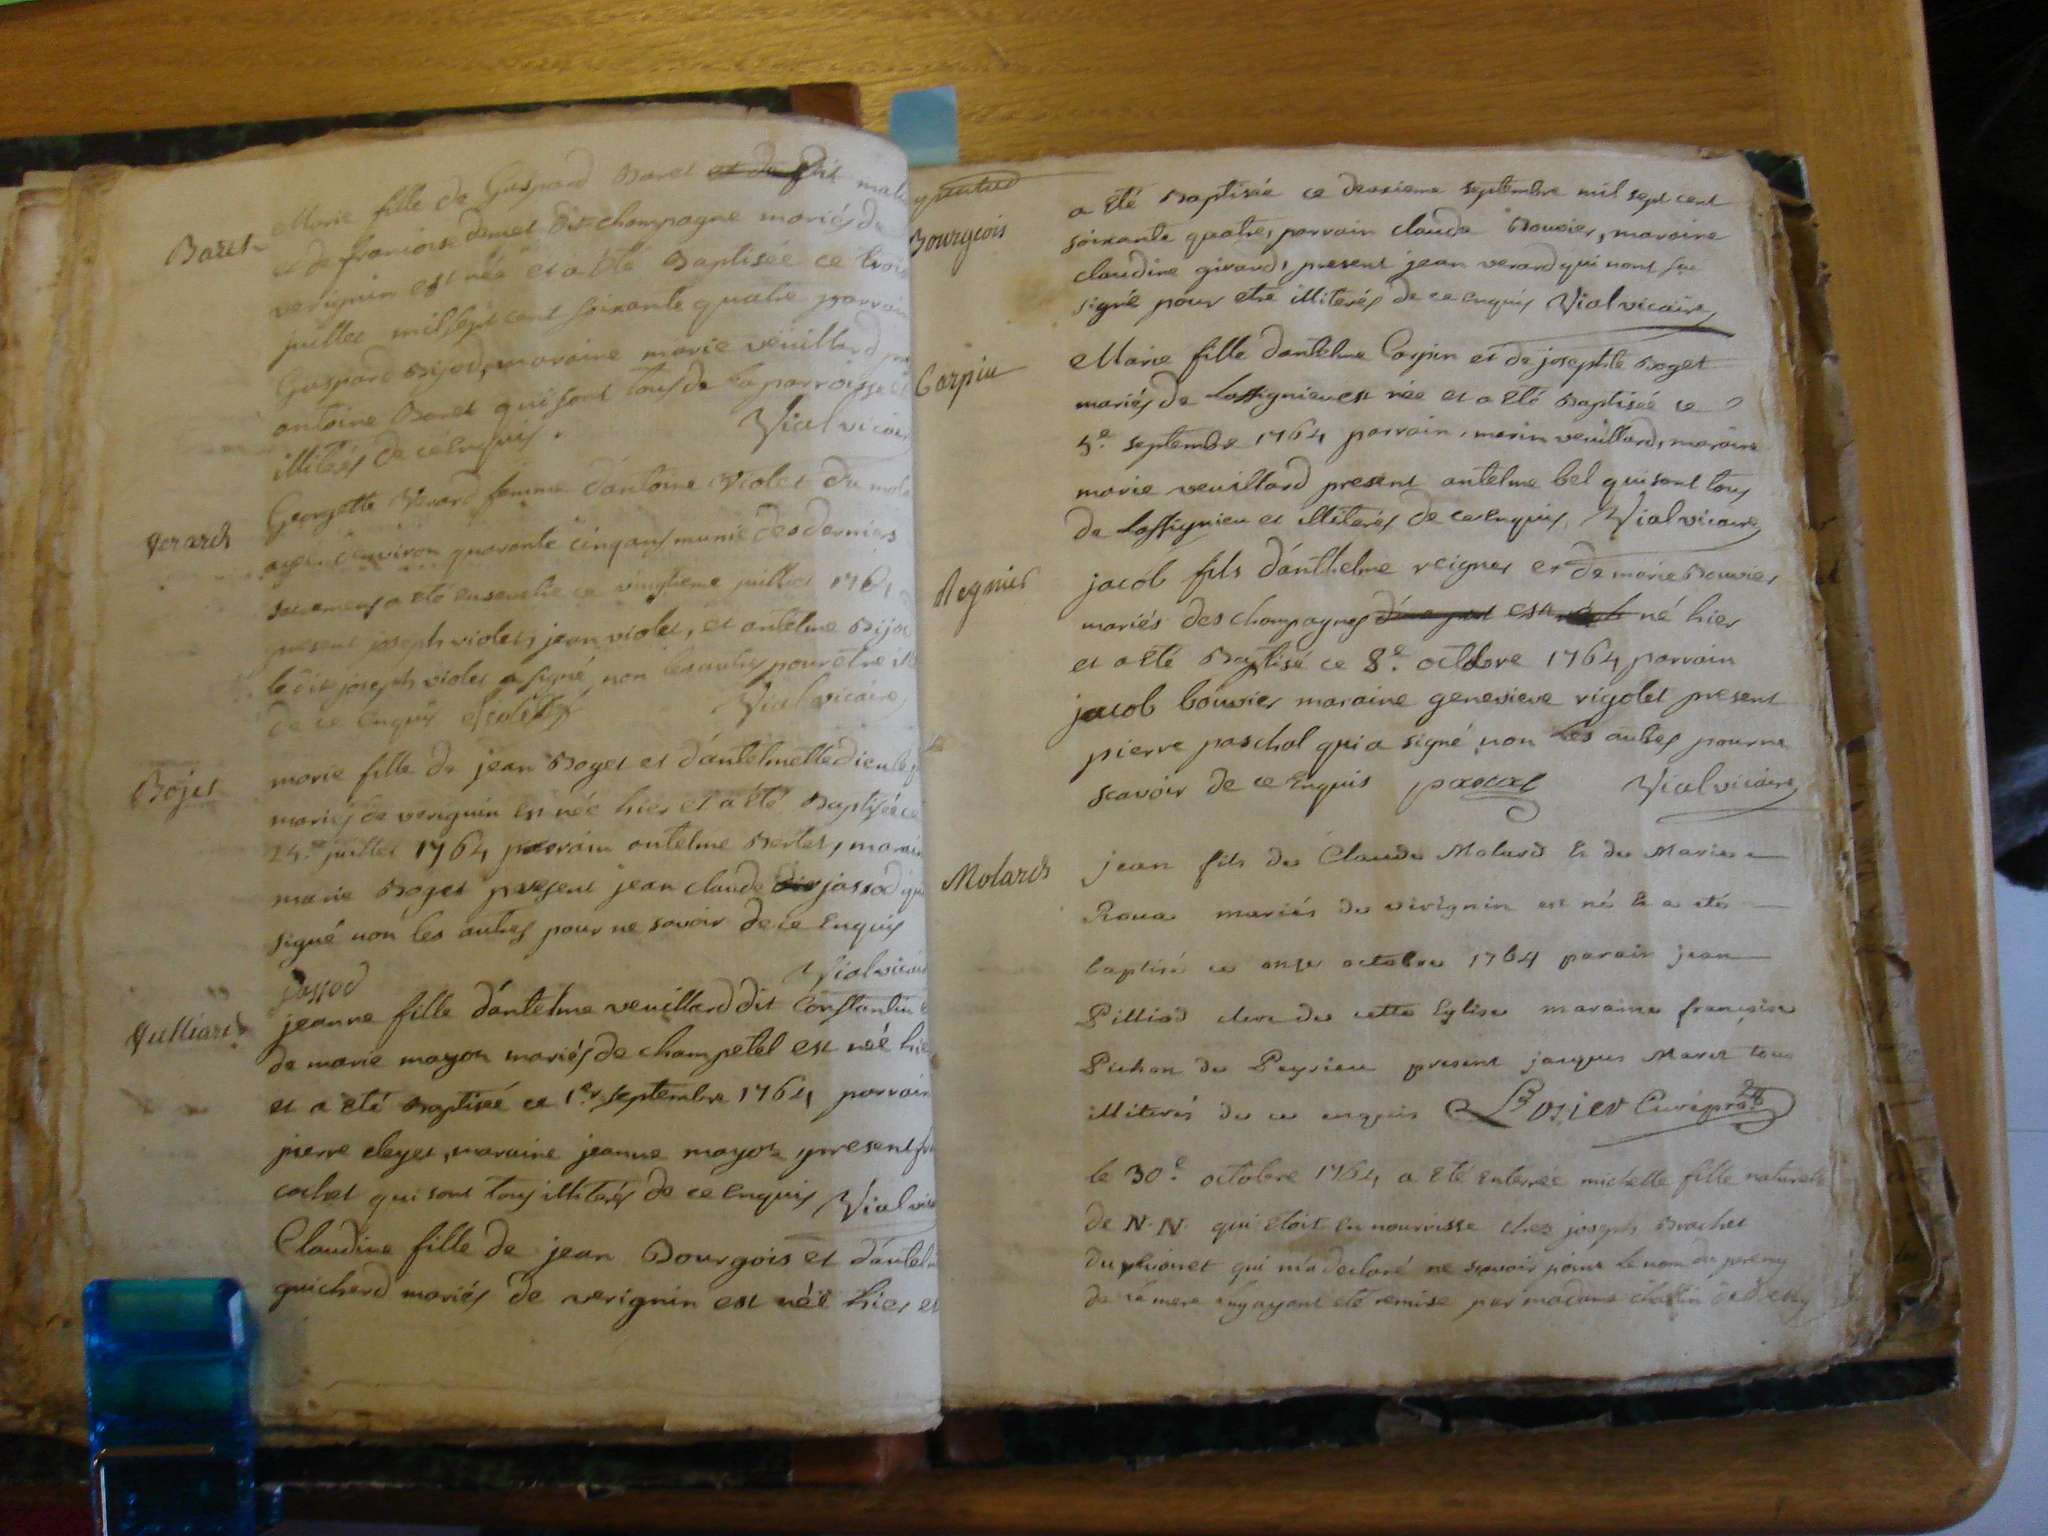 Baret
Marie fille de Gaspard Baret et de dit
et de francoise demet dit champagne mariés de
verignin est née et a été Baptisée ce trois
juillet mil sept cent soixante quatre parrain
Gaspard Bijod, maraine marie veuillard
antoine Baret qui sont tous de la parroisse
illiterés de ce Enquis.
Vial vicaire
Verard
Georgette Verard femme d'antoine Violet du
agée d'environ quarante cinq ans munie des derniers
sacremens a été ensevelie ce vingtieme juillet 1764
present joseph violet, jean violet, et antelme Bijod
le dit joseph violet a signé non les autres pour etre
de ce Enquis Violet
Vial vicaire
Bojet
marie fille de jean Boget et d'antelmette
mariés de verignin est née hier et a été Baptisée ce
24e juillet 1764 parrain antelme Bertet, maraine
marie Boget present jean claude jassod qui
signé non les autres pour ne savoir de ce Enquis
jassod
Vial vicaire
Vulliard
jeanne fille d'antelme veuillard dit Constantin
de marie mayon mariés de champetel est née hier
et a été Baptisée ce 1er septembre 1764 parrain
pierre cleyet, maraine jeanne mayon present
cochet qui sont tous illiterés de ce Enquis Vial
Claudine fille de jean Bourgois et d'antel
guicherd mariés de verignin est née hier et
Bourgeois
a été Baptisée ce deuxieme septembre mil sept cent
soixante quatre, parrain claude Bouvier, maraine
claudine girard, present jean verard qui nont
signé pour etre illiterés de ce enquis Vial vicaire
Carpin
Marie fille d'antelme Carpin et de josephte Boget
mariés de Lassignieu est née et a été Baptisée ce
5e septembre 1764 parrain, marin veuillard, maraine
marie veuillard present antelme bel qui sont tous
de Lassignieu et illiterés de ce enquis, Vial vicaire
Regnier
jacob fils d'anthelme reignier et de marie Bouvier
mariés des champagnes est né hier
et a été Baptisé ce 8e octobre 1764 parrain
jacob bouvier maraine genevieve rigolet present
pierre paschal qui a signé non les autres pour ne
scavoir de ce Enquis pascal Vial vicaire
Molard
jean fils de Claude Molard & de Marie
Roua mariés de virignin est né & a été
baptisé ce onze octobre 1764 parain jean
Pilliod clerc de cette Eglise maraine françoise
Pichon de Peyrieu present jacques Maret tous
illiterés de ce enquis Lozier Curé
le 30e octobre 1764 a été Enterrée michelle fille naturelle
de N. N. qui étoit en nourrisse chez joseph Brachet
du qui m'a declaré ne scavoir point le nom du pere ny
de la mere luy ayant été remise par madame